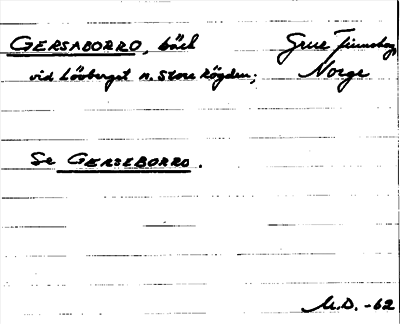 GERSABORRO, bäck
Grue Finnskog,
vid Lövberget n. Store Røgden;
Norge
Se GERSEBORRO.
M.D. -62